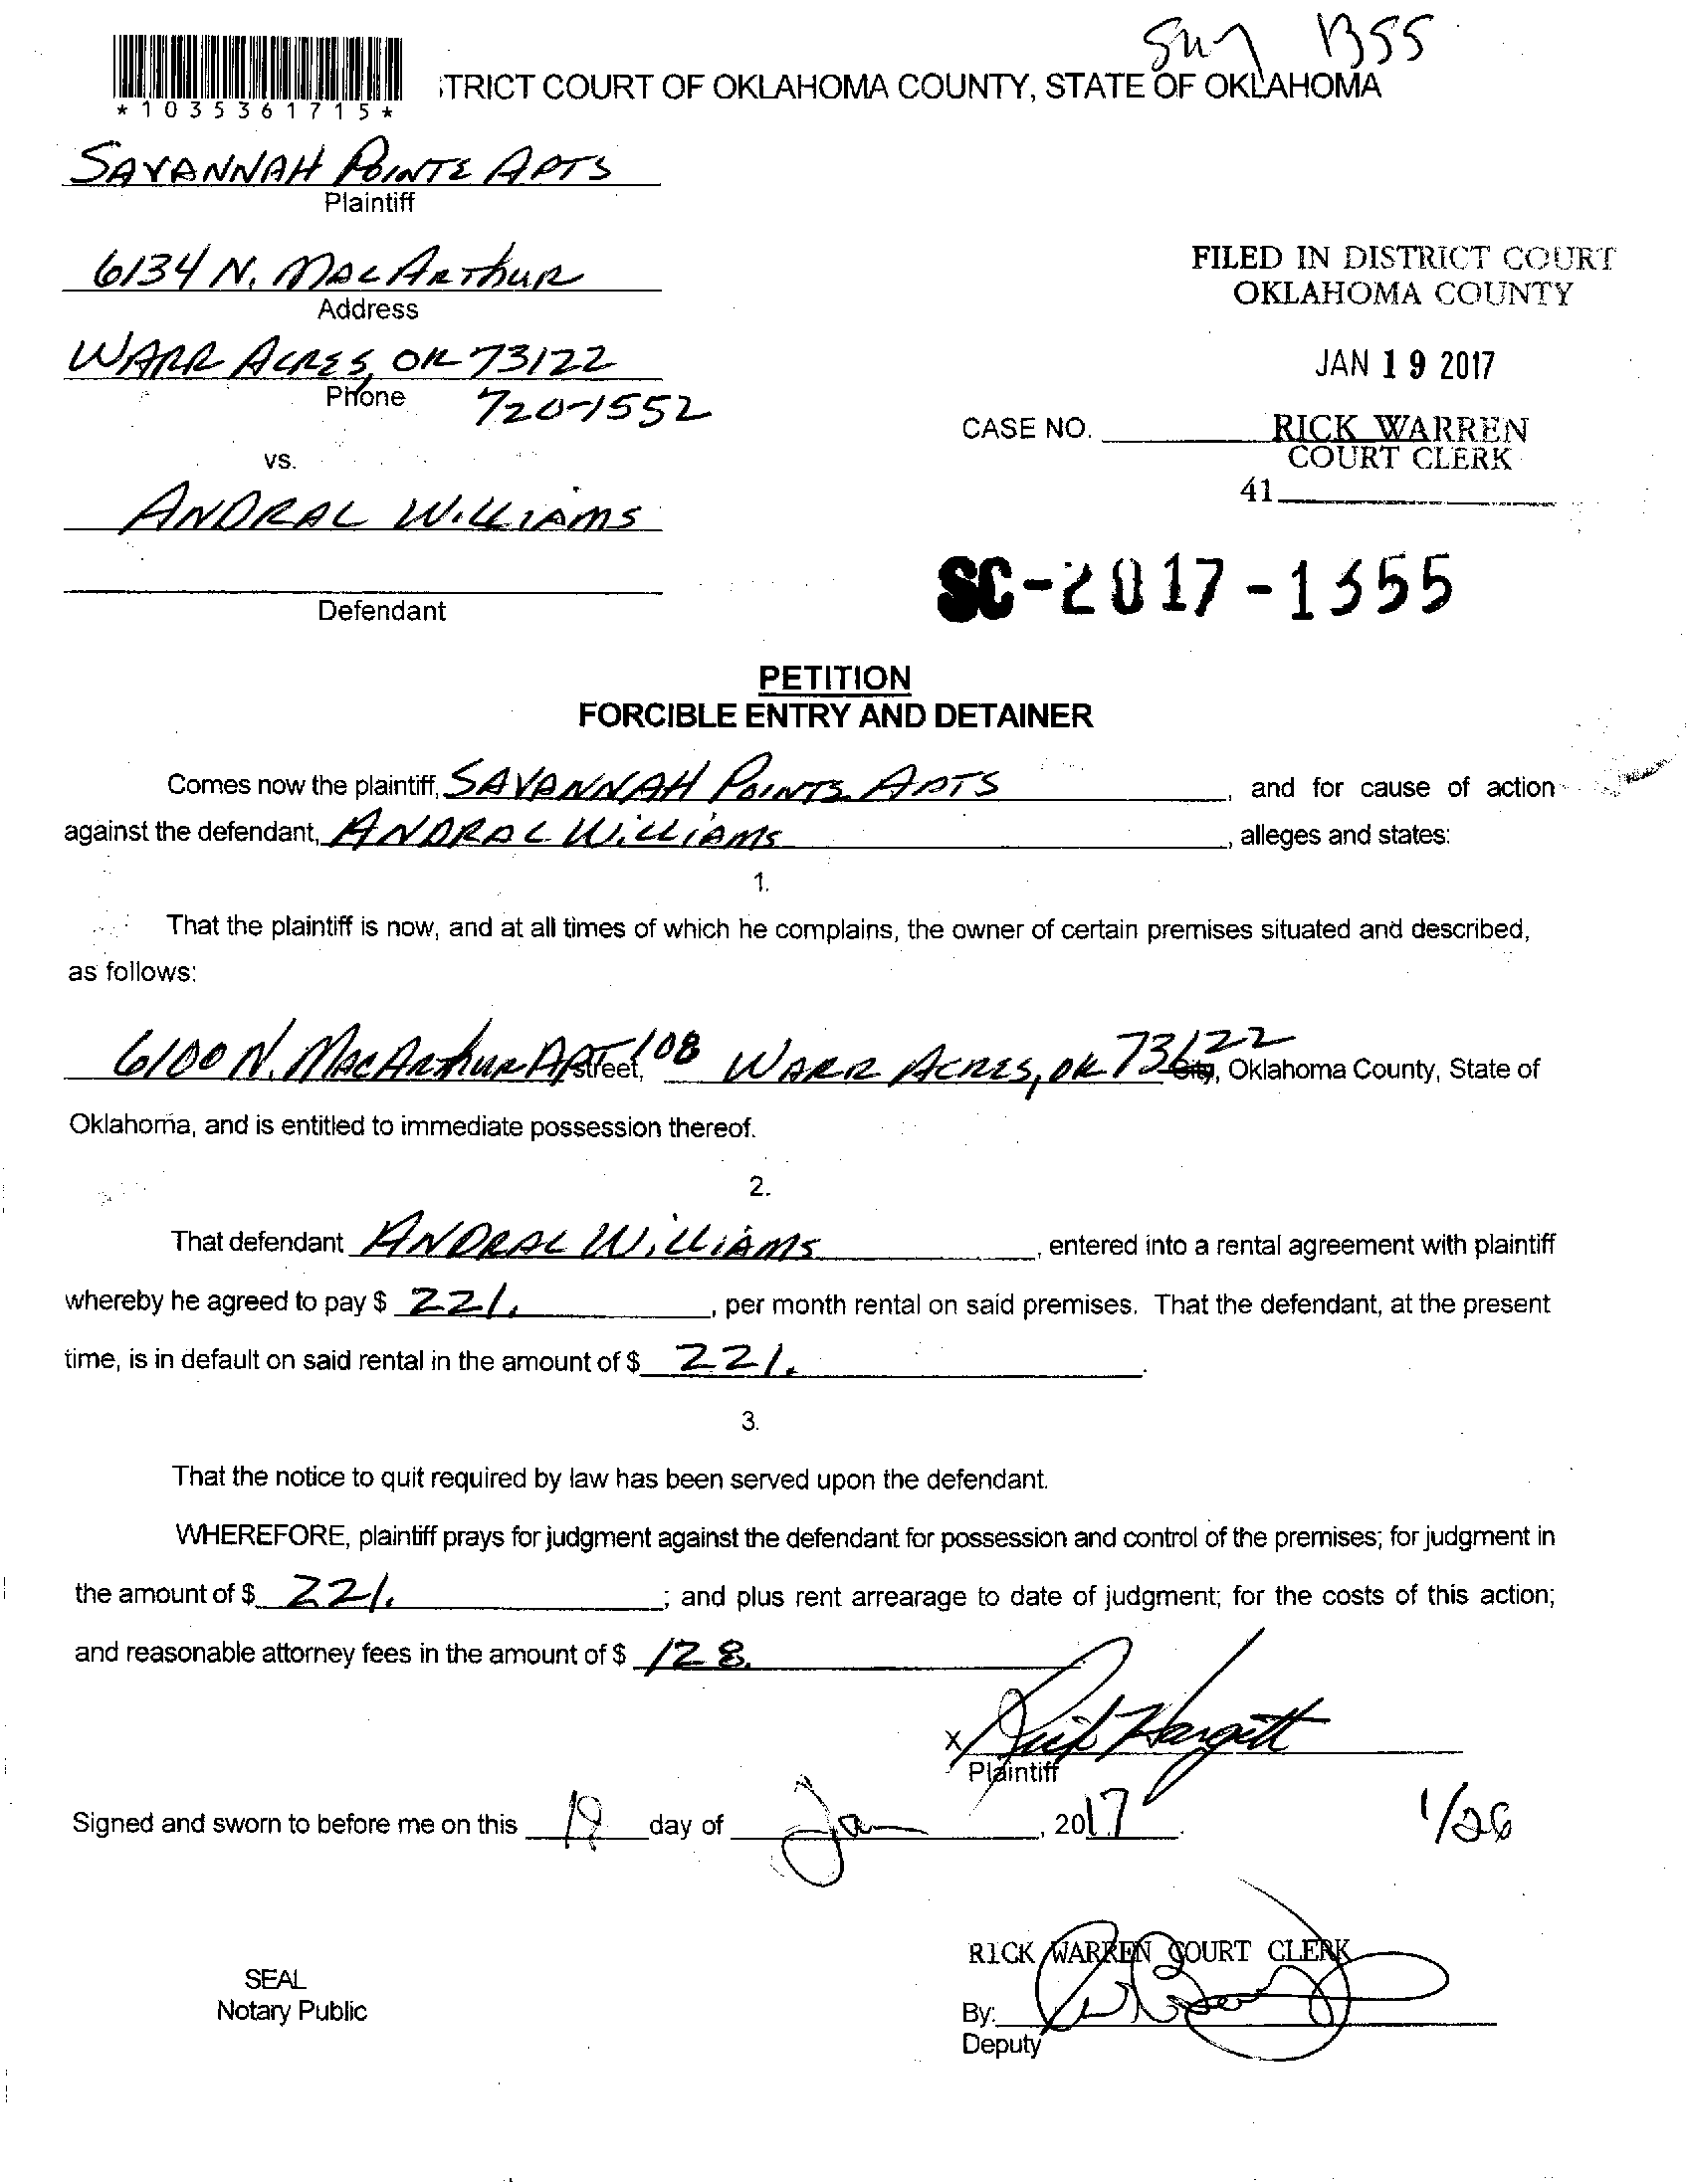 SC 1355
*1035361715*
TRICT COURT OF OKLAHOMA COUNTY, STATE OF OKLAHOMA
SAVANNAH POINTE APTS
Plaintiff
6134 N. MACARTHUR
Address
FILED IN DISTRICT COURT
OKLAHOMA COUNTY
WARR ACRES, OK 73122
JAN 19 2017
Phone 720-1552
CASE NO.
RICK WARREN
COURT CLERK
vs.
41
ANDRAL WILLIAMS
SC-2017-1355
Defendant
PETITION
FORCIBLE ENTRY AND DETAINER
Comes now the plaintiff, SAVANNAH POINTE APTS, and for cause of action
against the defendant, ANDRAL WILLIAMS, alleges and states:
1.
That the plaintiff is now, and at all times of which he complains, the owner of certain premises situated and described,
as follows:
6100 N. MACARTHUR APT 108 Street, WARR ACRES, OK 73122 City, Oklahoma County, State of
Oklahoma, and is entitled to immediate possession thereof.
2.
That defendant ANDRAL WILLIAMS, entered into a rental agreement with plaintiff
whereby he agreed to pay $ 221., per month rental on said premises. That the defendant, at the present
time, is in default on said rental in the amount of $ 221..
3.
That the notice to quit required by law has been served upon the defendant.
WHEREFORE, plaintiff prays for judgment against the defendant for possession and control of the premises; for judgment in
the amount of $ 221.; and plus rent arrearage to date of judgment; for the costs of this action;
and reasonable attorney fees in the amount of $ 128.
x Rick Hargett
Plaintiff
Signed and sworn to before me on this 19 day of Jan, 2017.
1/26
RICK WARREN COURT CLERK
SEAL
Notary Public
By:
Deputy